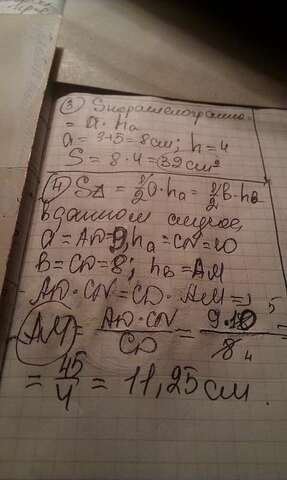 ③ Sпараллелограмма
= a · ha
a = 3+5=8см; h=4
S = 8·4=32см²
④ S△ = 1/2 a·ha = 1/2 B·hB
В данном случае,
a = AD=9, ha = CN=10
B = CD=8; hB = AM
AD·CN = CD·AM =>
AM = AD·CN / CD = 9·10 5 / 8 4 =
= 45/4 = 11,25 см.